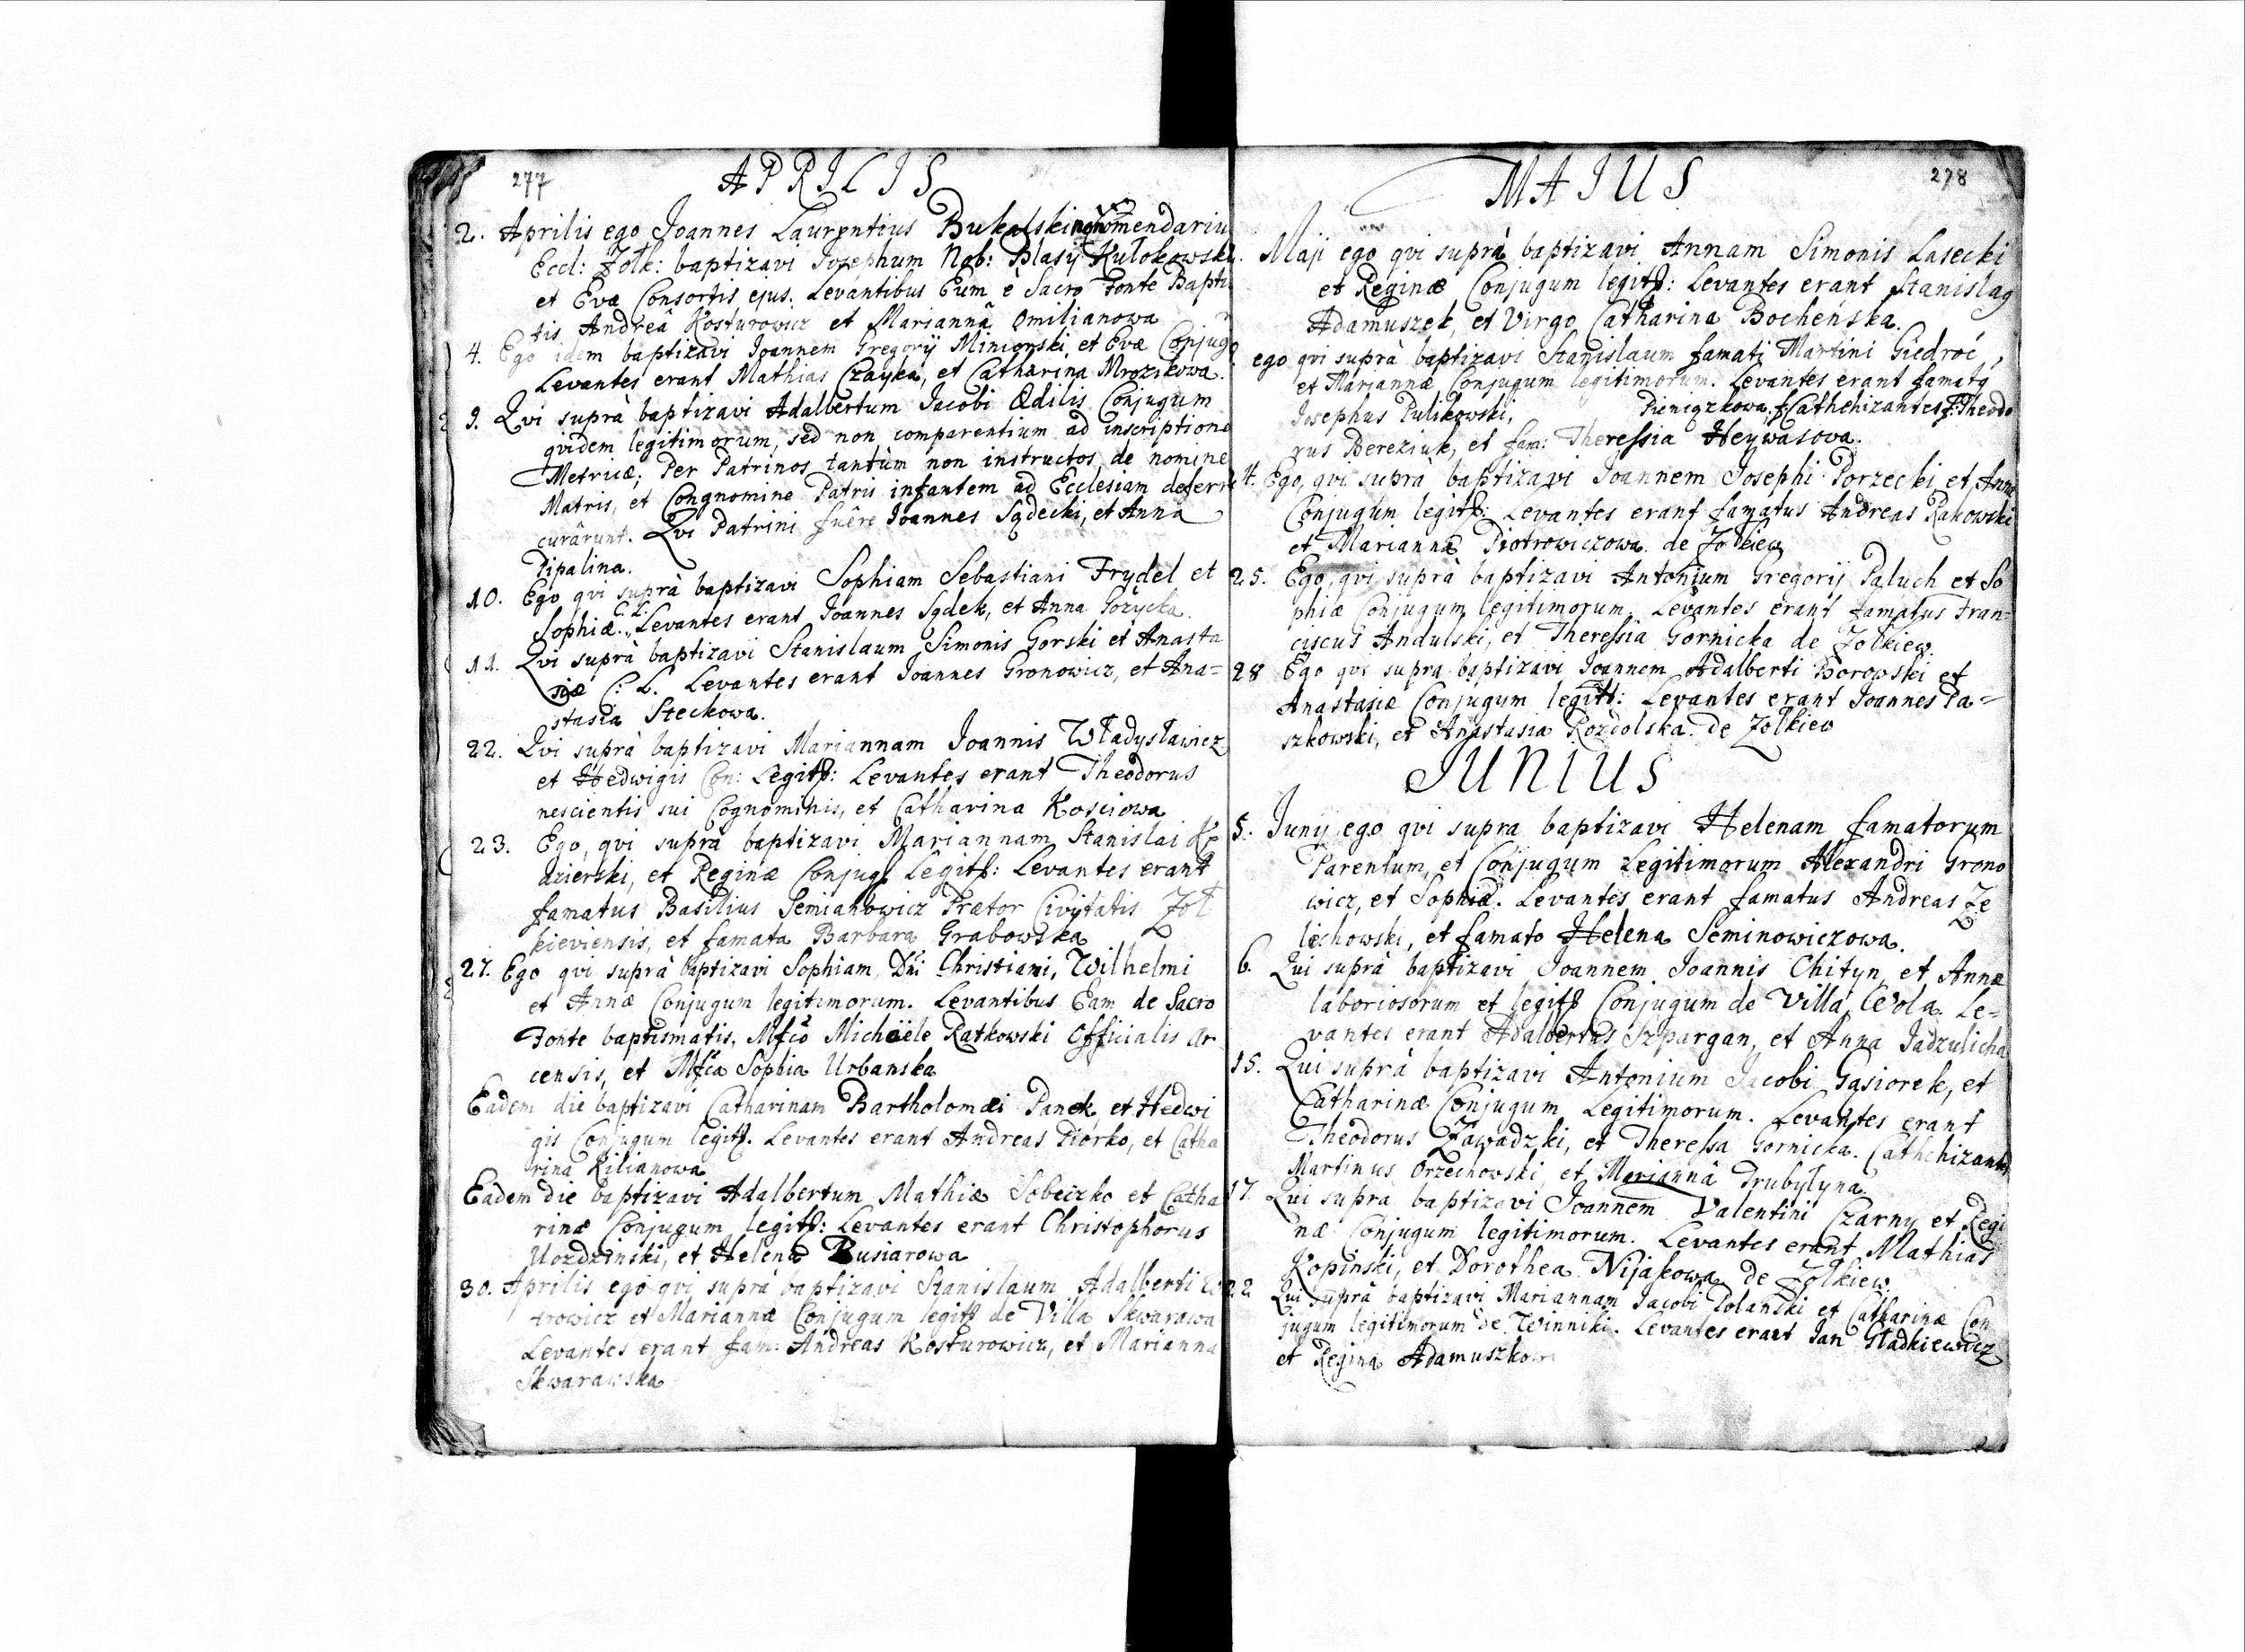 277
APRILIS
2. Aprilis ego Joannes Laurentius Bukalski Comendariu
Eccl: Zolk: baptizavi Josephum Nob: Blasij Kulokowski
et Evæ Consortis ejus. Levantibus Eum è Sacro Fonte Bapti
tis Andreâ Kosturowicz et Mariannâ Omilianowa
4. Ego idem baptizavi Joannem Gregorij Minionski, et Evæ Conjug
Levantes erant Mathias Czayka, et Catharina Mrozikowa.
9. Qvi suprà baptizavi Adalbertum Jacobi Ædilis Conjugum
qvidem legitimorum, sed non comparentium ad inscriptione
Metricæ, Per Patrinos tantùm non instructos de nomine
Matris, et Congnomine Patris infantem ad Ecclesiam deferr
curârunt. Qvi Patrini fuêre Joannes Sądecki, et Anna
Pipalina.
10. Ego qvi suprà baptizavi Sophiam Sebastiani Frydel et
Sophiæ C. L. Levantes erant Joannes Sądek, et Anna Pożycka
11. Qvi suprà baptizavi Stanislaum Simonis Gorski et Anasta
siæ C: L. Levantes erant Joannes Gronowicz, et Ana=
stasia Steckowa.
22. Qvi suprà baptizavi Mariannam Joannis Władysławicz
et Hedwigis Con: Legitt: Levantes erant Theodorus
nescientis sui Cognominis, et Catharina Kosciowa
23. Ego, qvi suprà baptizavi Mariannam Stanislai Kę
dzierski, et Reginæ Conjug Legitt: Levantes erant
famatus Basilius Semianowicz Prætor Civitatis Zoł
kieviensis, et famata Barbara Grabowska
27. Ego qvi suprà baptizavi Sophiam Dni Christiani, Wilhelmi
et Annæ Conjugum legitimorum. Levantibus Eam de Sacro
Fonte baptismatis, Mfco Michaële Ratkowski Officialis Ar
censis, et Mfca Sophia Urbanska
Eadem die baptizavi Catharinam Bartholomæi Panek et Hedwi
gis Conjugum legitt. Levantes erant Andreas Piorko, et Catha
rina Kilianowa
Eadem die baptizavi Adalbertum Mathiæ Sobeczko et Catha
rinæ Conjugum legitt: Levantes erant Christophorus
Uozdzinski, et Helena Busiarowa
30. Aprilis ego qvi suprà baptizavi Stanislaum Adalberti
trowicz et Mariannæ Conjugum legitt de Villa Skwarawa
Levantes erant fam: Andreas Kosturowicz, et Marianna
Skwarawska
278
MAIUS
Maji ego qvi suprà baptizavi Annam Simonis Lasecki
et Reginæ Conjugum legitt: Levantes erant Stanislag
Adamuszek, et Virgo Catharina Bocheńska.
ego qvi suprà baptizavi Stanislaum famati Martini Giedroć,
et Mariannæ Conjugum legitimorum. Levantes erant famatq
Josephus Pulikowski, Pieniązkowa, Cathehizantes F: Theodo
rus Bereziuk, et fam: Theressia Heywasova.
4. Ego, qvi suprà baptizavi Joannem Josephi Porzecki et Annæ
Conjugum legitt: Levantes erant famatus Andreas Rakowski
et Marianna Piotrowiczowa de Zolkiew
25. Ego, qvi suprà baptizavi Antonium Gregorij Paluch et So
phiæ Conjugum legitimorum. Levantes erant famatus Fran=
ciscus Andulski, et Theressia Gornicka de Zolkiew.
28 Ego qvi supra baptizavi Joannem Adalberti Borowski et
Anastasiæ Conjugum legitt: Levantes erant Joannes Pa=
szkowski, et Anastasia Rozdolska de Zolkiew
JUNIUS
5. Iunij ego qvi supra baptizavi Helenam famatorum
Parentum, et Conjugum Legitimorum Alexandri Grono
wicz, et Sophiæ. Levantes erant famatus Andreas Ze
lichowski, et famato Helena Seminowiczowa.
6. Qui suprà baptizavi Joannem Joannis Chityn, et Annæ
laboriosorum et legitt Conjugum de Villa Wola. Le=
vantes erant Adalbertus Szpargan, et Anna Jadzulicha
15. Qui suprà baptizavi Antonium Jacobi Gąsiorek, et
Catharinæ Conjugum Legitimorum. Levantes erant
Theodorus Zawadzki, et Theressa Gornicka. Cathehizantes
Martinus Orzechowski et Marianna Trubylyna.
17. Qui supra baptizavi Joannem Valentini Czarny et Regi
næ Conjugum legitimorum. Levantes erant Mathias
Kopinski, et Dorothea Nijakowa de Zolkiew.
22 Qui suprà baptizavi Mariannam Jacobi Polanski et Catharinæ Con
jugum legitimorum de Winniki. Levantes erant Jan Gładkiewicz
et Regina Adamuszkow